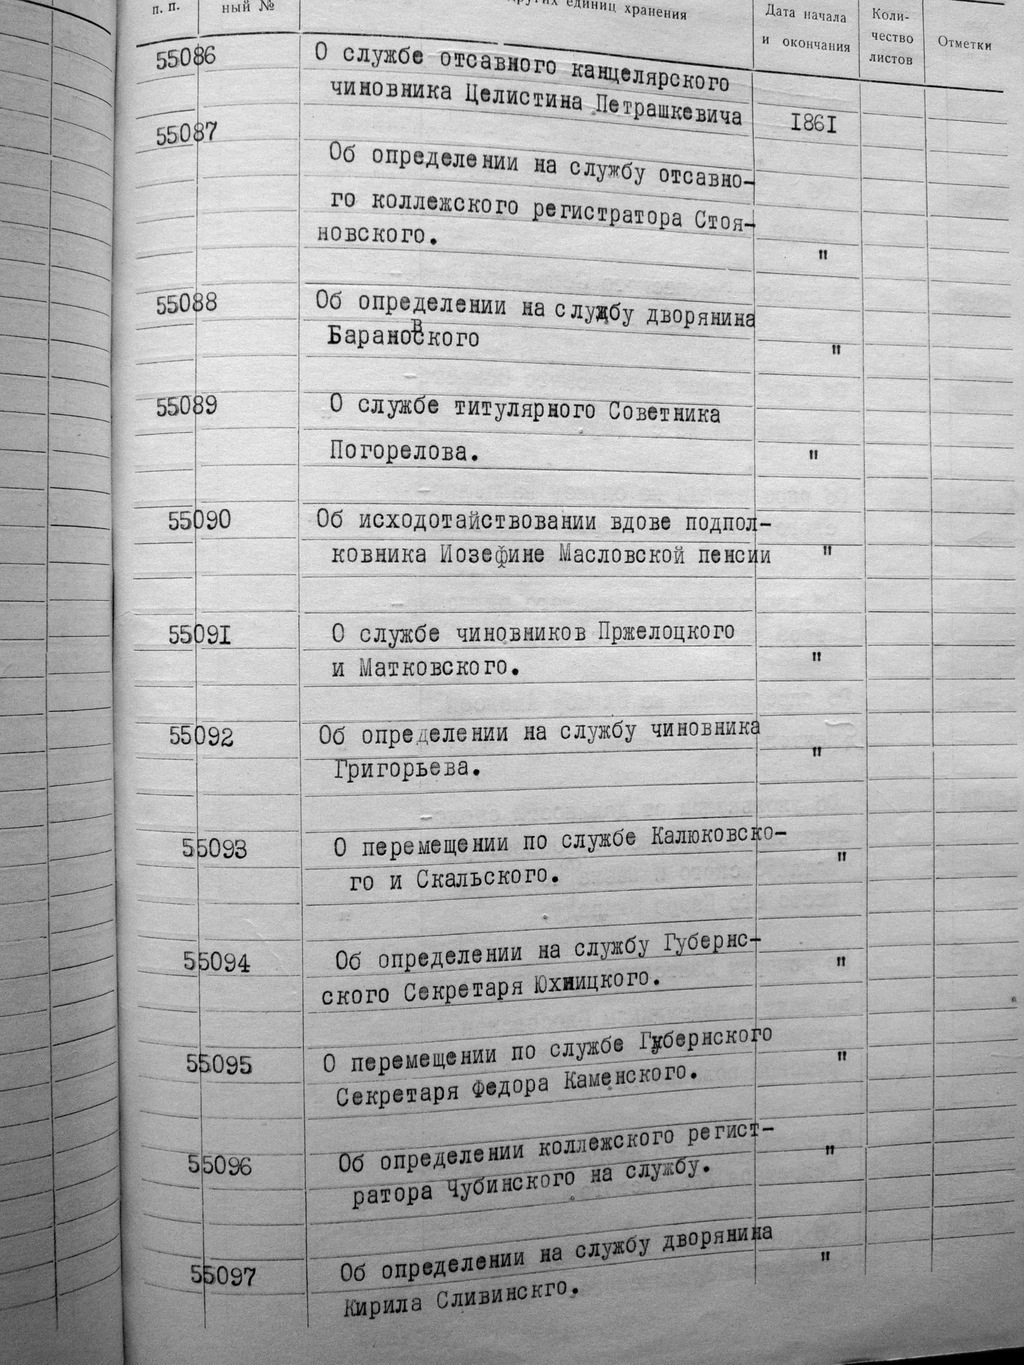 п. п.
ный №
других единиц хранения
Дата начала
и окончания
Коли-
чество
листов
Отметки
55086
О службе отсавного канцелярского
чиновника Целистина Петрашкевича
1861
55087
Об определении на службу отсавно-
го коллежского регистратора Стоя-
новского.
"
55088
Об определении на службу дворянина
Барановского
"
55089
О службе титулярного Советника
Погорелова.
"
55090
Об исходотайствовании вдове подпол-
ковника Иозефине Масловской пенсии
"
55091
О службе чиновников Пржелоцкого
и Матковского.
"
55092
Об определении на службу чиновника
Григорьева.
"
55093
О перемещении по службе Калюковско-
го и Скальского.
"
55094
Об определении на службу Губернс-
ского Секретаря Юхницкого.
"
55095
О перемещении по службе Губернского
Секретаря Федора Каменского.
"
55096
Об определении коллежского регист-
ратора Чубинского на службу.
"
55097
Об определении на службу дворянина
Кирила Сливинскго.
"